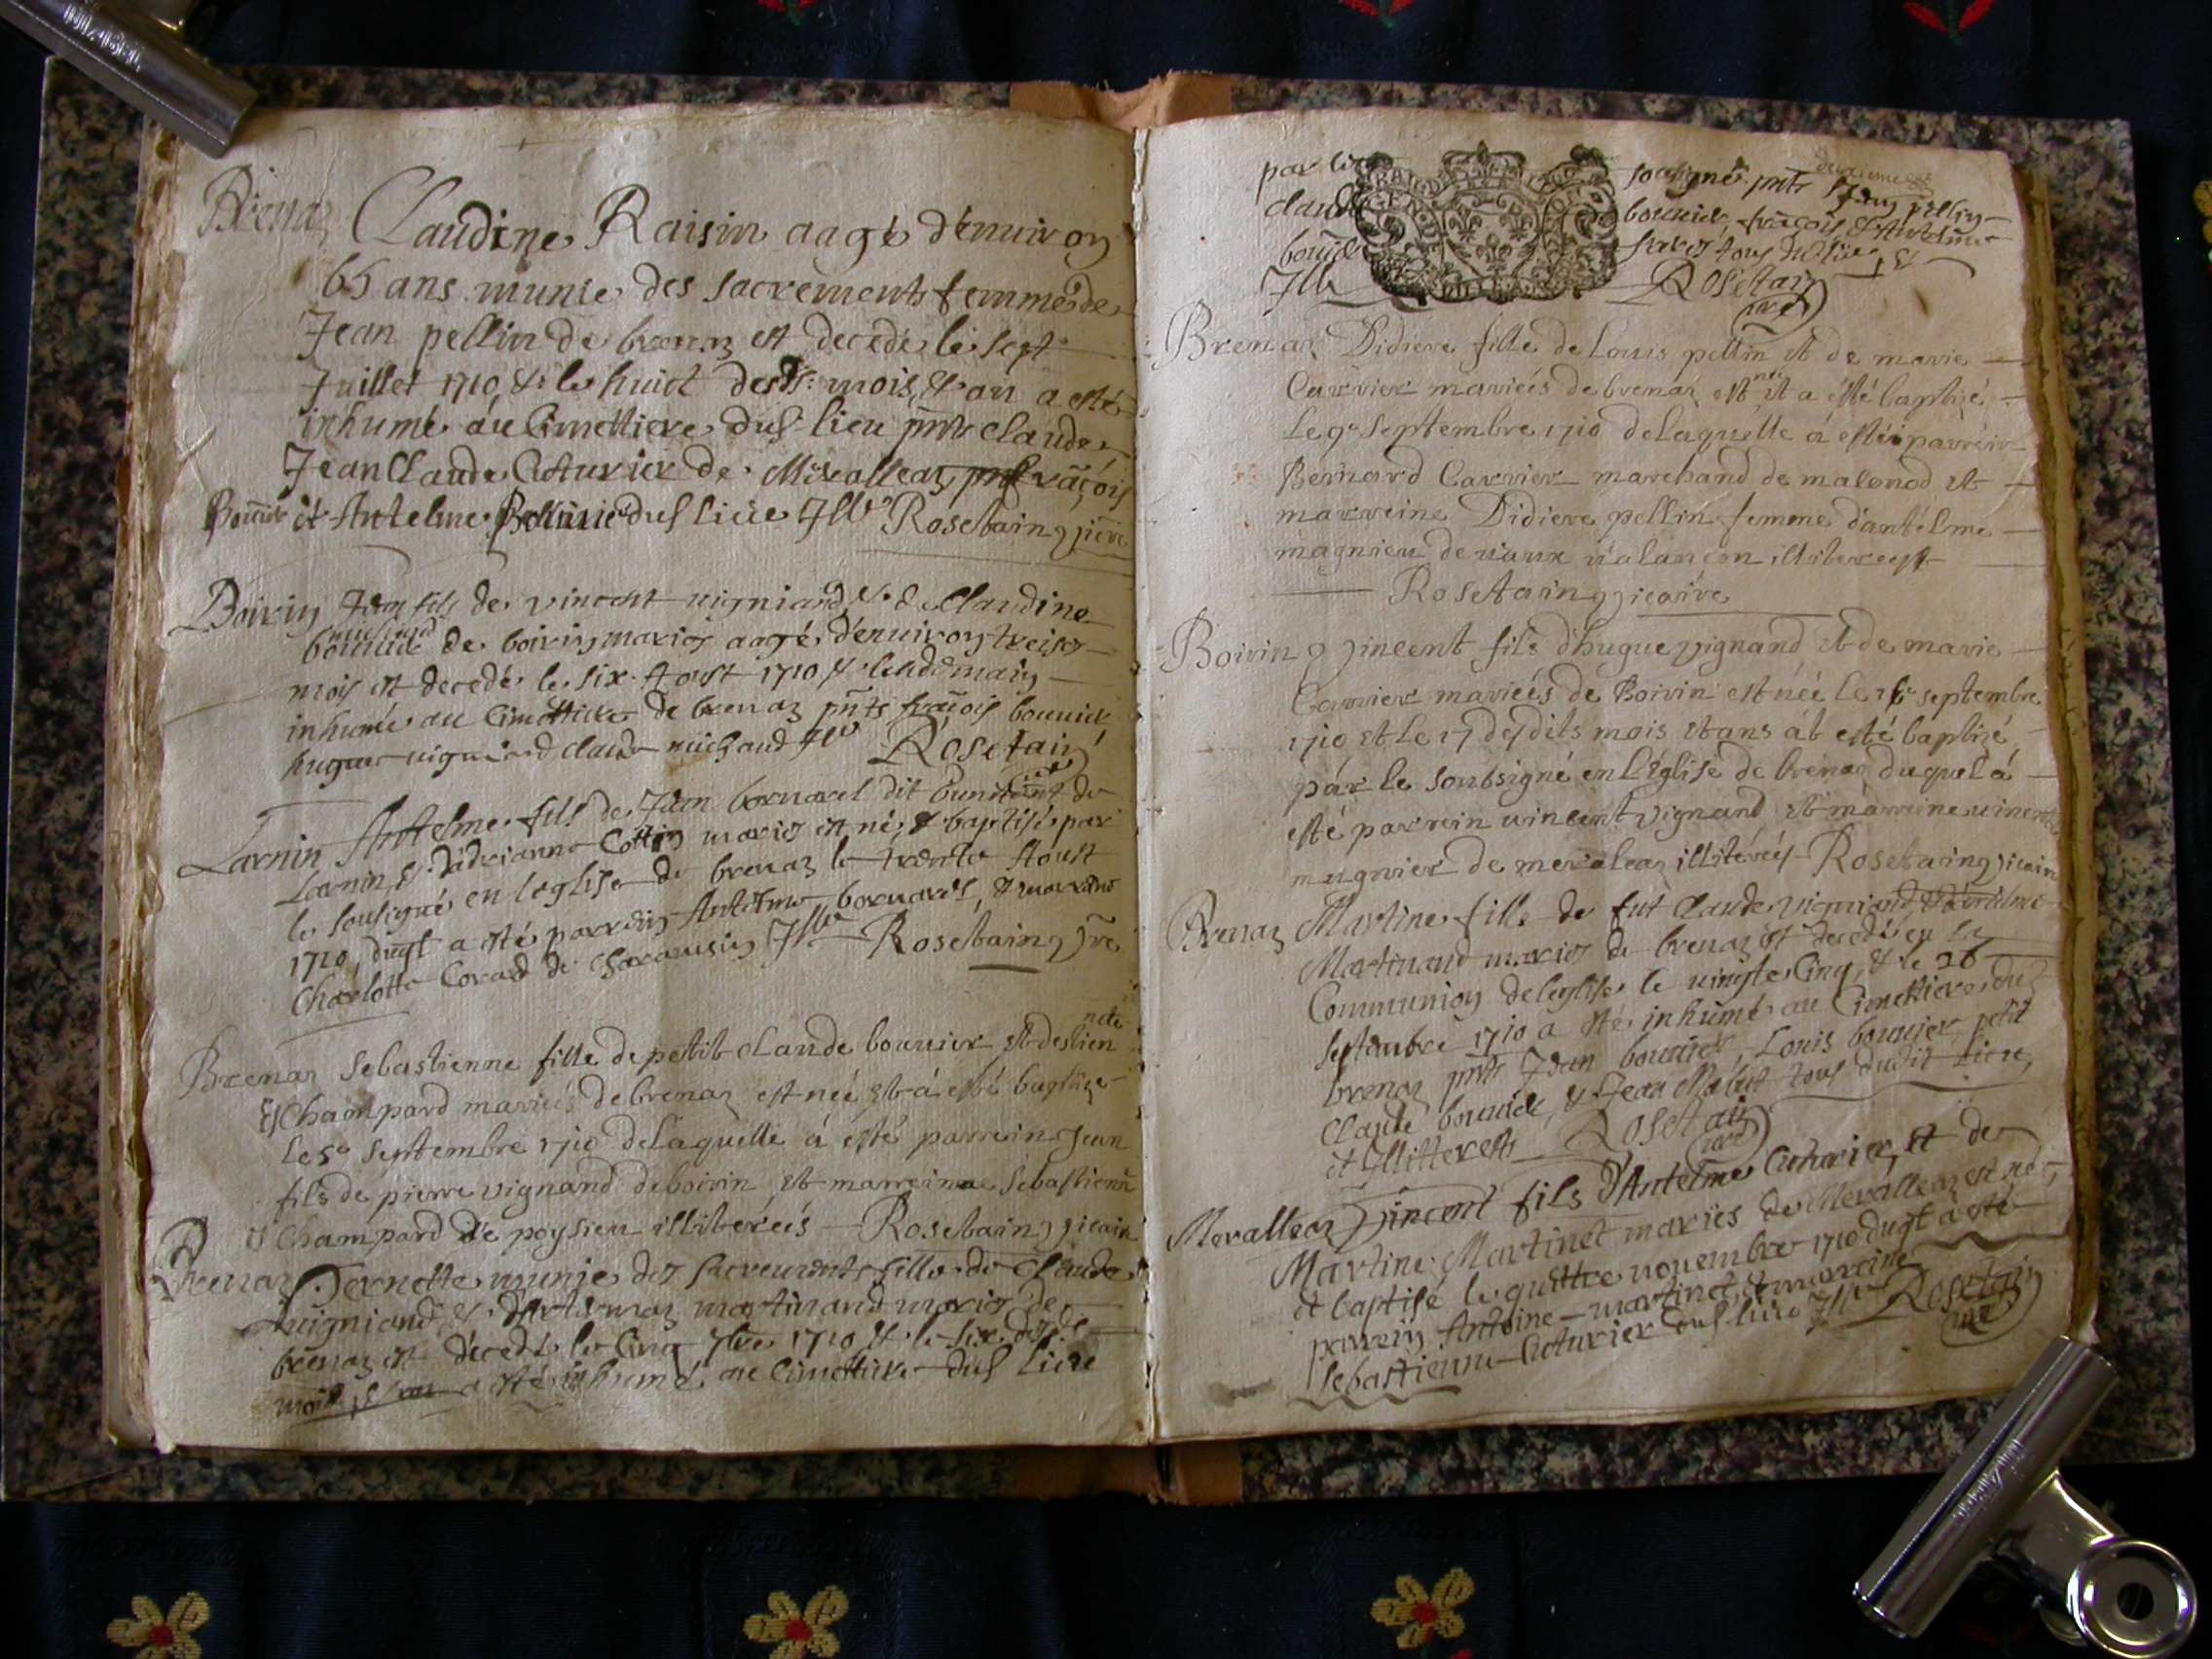 Brenaz Claudine Raisin aagé d'enuiron
65 ans munie des sacrements femme de
Jean pellin de brenaz est decedé le sept
Juillet 1710, & le huict desd. mois, & an a esté
inhumé au Cimettiere dud lieu pnts claude
Jean Claude Cuturier de françois
et Antelme dud lieu Ille Rosetaing
Boirin Jean fils de vincent uigniand, & de Claudine
michaud
de boirin mariés aagé d'enuiron treise
mois est decedé le six Aoust 1710 & lendemain
inhumé au Cimettiere de brenaz pnts françois bouuier,
hugue uigniand claude michaud Ille Rosetain
Larnin Antelme fils de Jean bornarel dit de
Larnin, & d'adrianne Cottin mariés est né, & baptisé par
le sousigné en leglise de brenaz le trente Aoust
1710, duqt a esté parrein Antelme bornarel, & marreine
Charlotte de Ille Rosetaing
Brenaz Sebastienne fille de petit claude bouuier et destien
nete
Champard mariés de brenaz est neé et á esté baptizé
Le 5e Septembre 1710 de Laquelle á esté parrein Jean
fils de pierre vignand de boirin et marreinne Sebastienn
Champard de poysieu illiterées Rosetaing vicair
Brenaz Pernette munie des sacrements fille de Claude
uigniand, & martinand mariés de
brenaz est decedé le cinq 7bre 1710 & le six desd
mois, & an a esté inhumé au Cimettiere dud lieu
par le sousigné pnts Jean pellin
claude bouuier, françois, & Antelme
tous dud lieu
Ille Rosetain
Brenaz Didiere fille de Louis pellin et de marie
née
Carrier marieés de brenaz est et a ésté baptizé
Le 9e Septembre 1710 de Laquelle á esté parrein
Bernard Carrier marchand de malonod et
marreine Didiere pellin femme d'antelme
magnieu de uaux ualançon
Rosetaing vicaire
Boirin vincent fils d'hugue vignand et de marie
Carrier marieés de Boirin est neé Le 16e septembre
1710 et Le 17 desdits mois et ans át esté baptizé
pár le soubsigné en L'Eglise de brenaz duquel á
esté parrein uincent vignand et márreine
mugnier de meraleaz illiterés Rosetaing vicaire
Brenaz Martine fille de fut Claude
Martinand mariés de brenaz est decedé en la
Communion de leglise le uingte Cinq, & le 26
septembre 1710 a esté inhumé au Cimettiere dud
brenaz pnts Jean bouuier, Louis bouuier, petit
Claude bouuier, & Jean tous dudit Lieu,
et Illitterests Rosetain
Meralleaz vincent fils d'Antelme Cuturier, et de
Martine Martinet mariés de Merallea est né,
et baptisé le quattre nouembre 1710 duqt a esté
parrein Antoine martinet, & marreine
Sebastienne Cuturier dud lieu Ille Rosetain